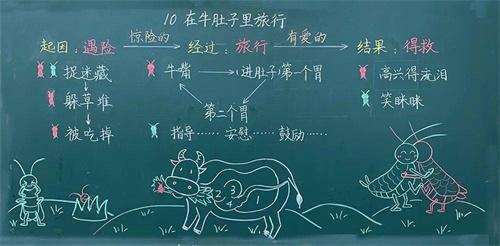 10 在牛肚子里旅行
起因：遇险 惊险的 经过：旅行 有爱的 结果：得救
捉迷藏 牛嘴 （进肚子）第一个胃 高兴得流泪
躲草堆 第二个胃 笑眯眯
被吃掉 指导…… 安慰…… 鼓励……
1 2 3 4